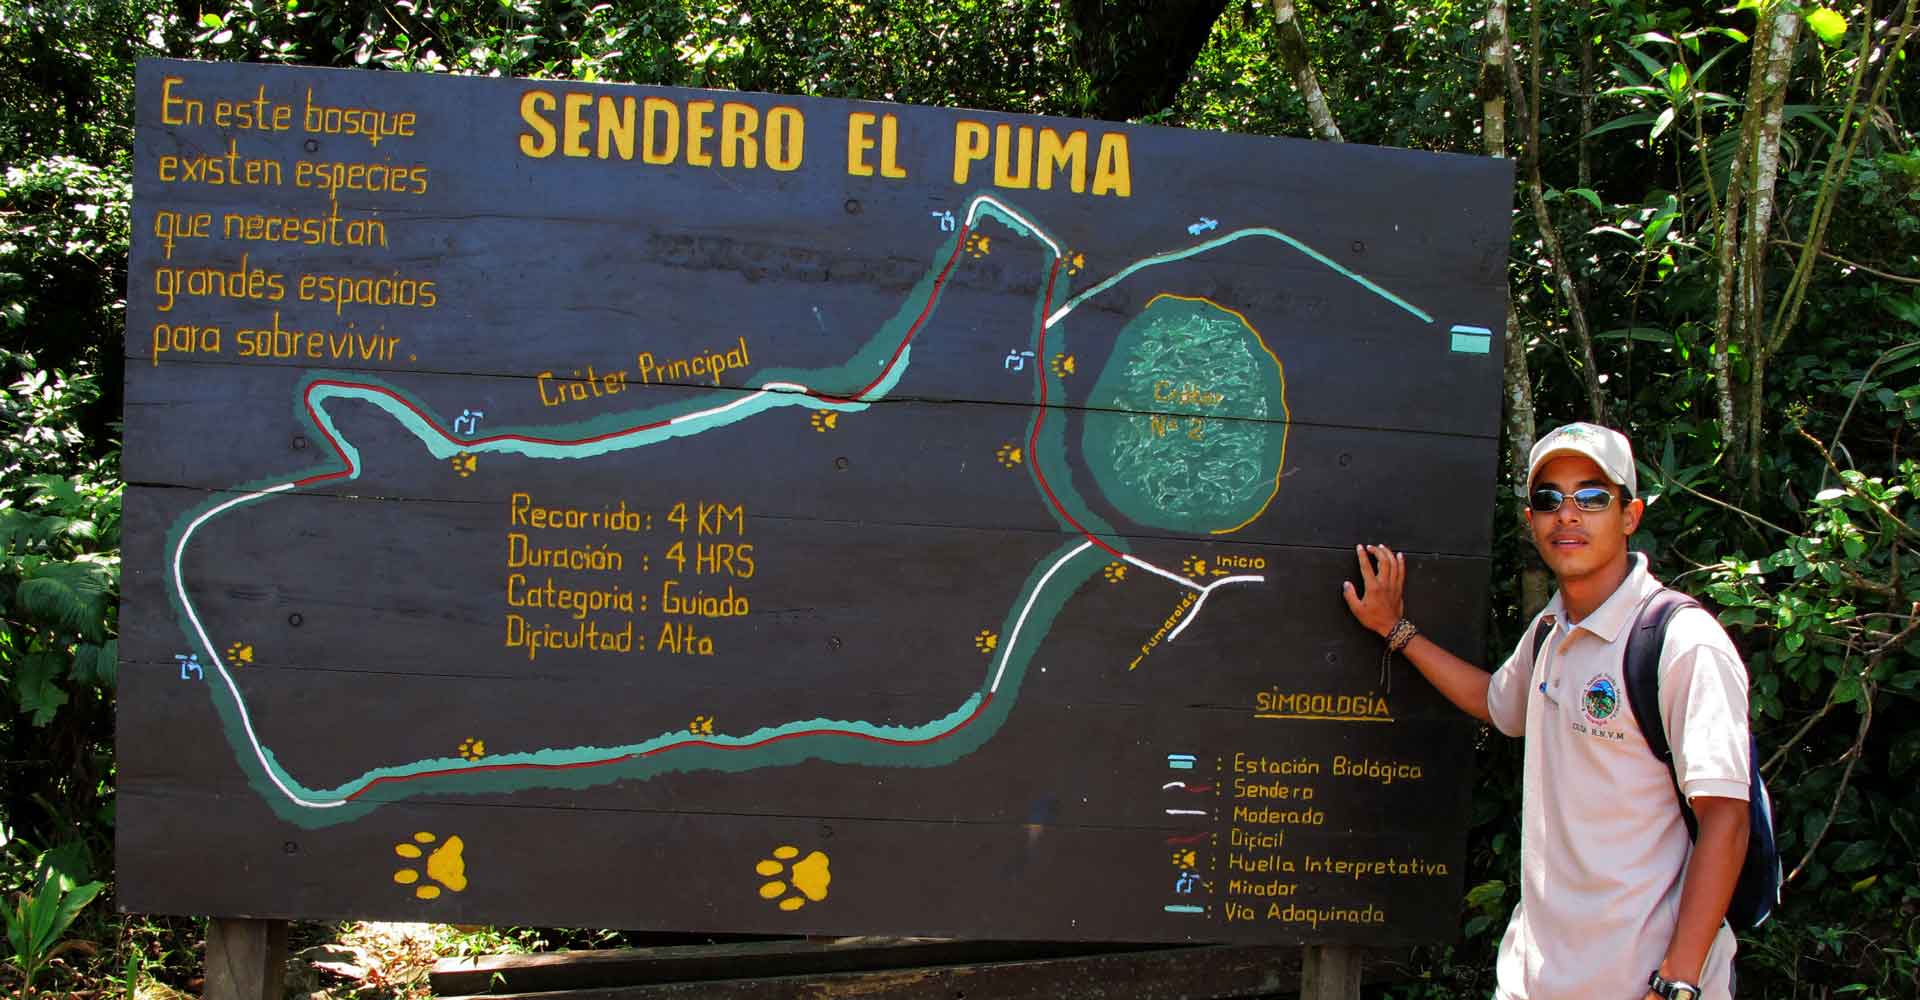 En este bosque
existen especies
que necesitan
grandes espacios
para sobrevivir.
SENDERO EL PUMA
Cráter Principal
Cráter
Nº 2
Recorrido: 4 KM
Duración : 4 HRS
Categoria: Guiado
Dificultad: Alta
INICIO
Fumarolas
SIMBOLOGÍA
: Estación Biológica
: Sendero
: Moderado
: Difícil
: Huella Interpretativa
: Mirador
: Via Adoquinada
GUIA R.N.V.M